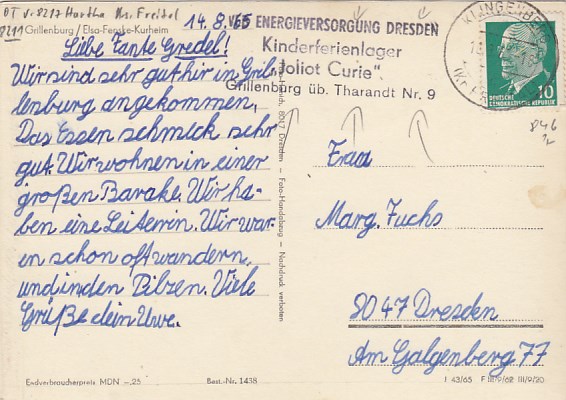 OT v. 8217 Hartha Krs. Freital
8211
Grillenburg / Elsa-Fenske-Kurheim
14. 8. 65
VEB ENERGIEVERSORGUNG DRESDEN
Kinderferienlager
"Joliot Curie"
Grillenburg üb. Tharandt Nr. 9
KLINGENBERG
10
DEUTSCHE
DEMOKRATISCHE REPUBLIK
846
Liebe Tante Gredel!
Wir sind sehr gut hir in Gril-
lenburg angekommen,
Das Essen schmeck sehr
gut. Wir wohnen in einer
großen Barake. Wir ha-
ben eine Leiterrin. Wir war-
en schon oft wandern,
und in den Pilzen. Viele
Grüße dein Uwe.
Frau
Marg. Fuchs
8047 Dresden
Am Galgenberg 77
8017 Dresden – Foto-Handabzug – Nachdruck verboten
Endverbraucherpreis MDN –,25
Best.-Nr. 1438
I 43/65 F III/9/62 III/9/20